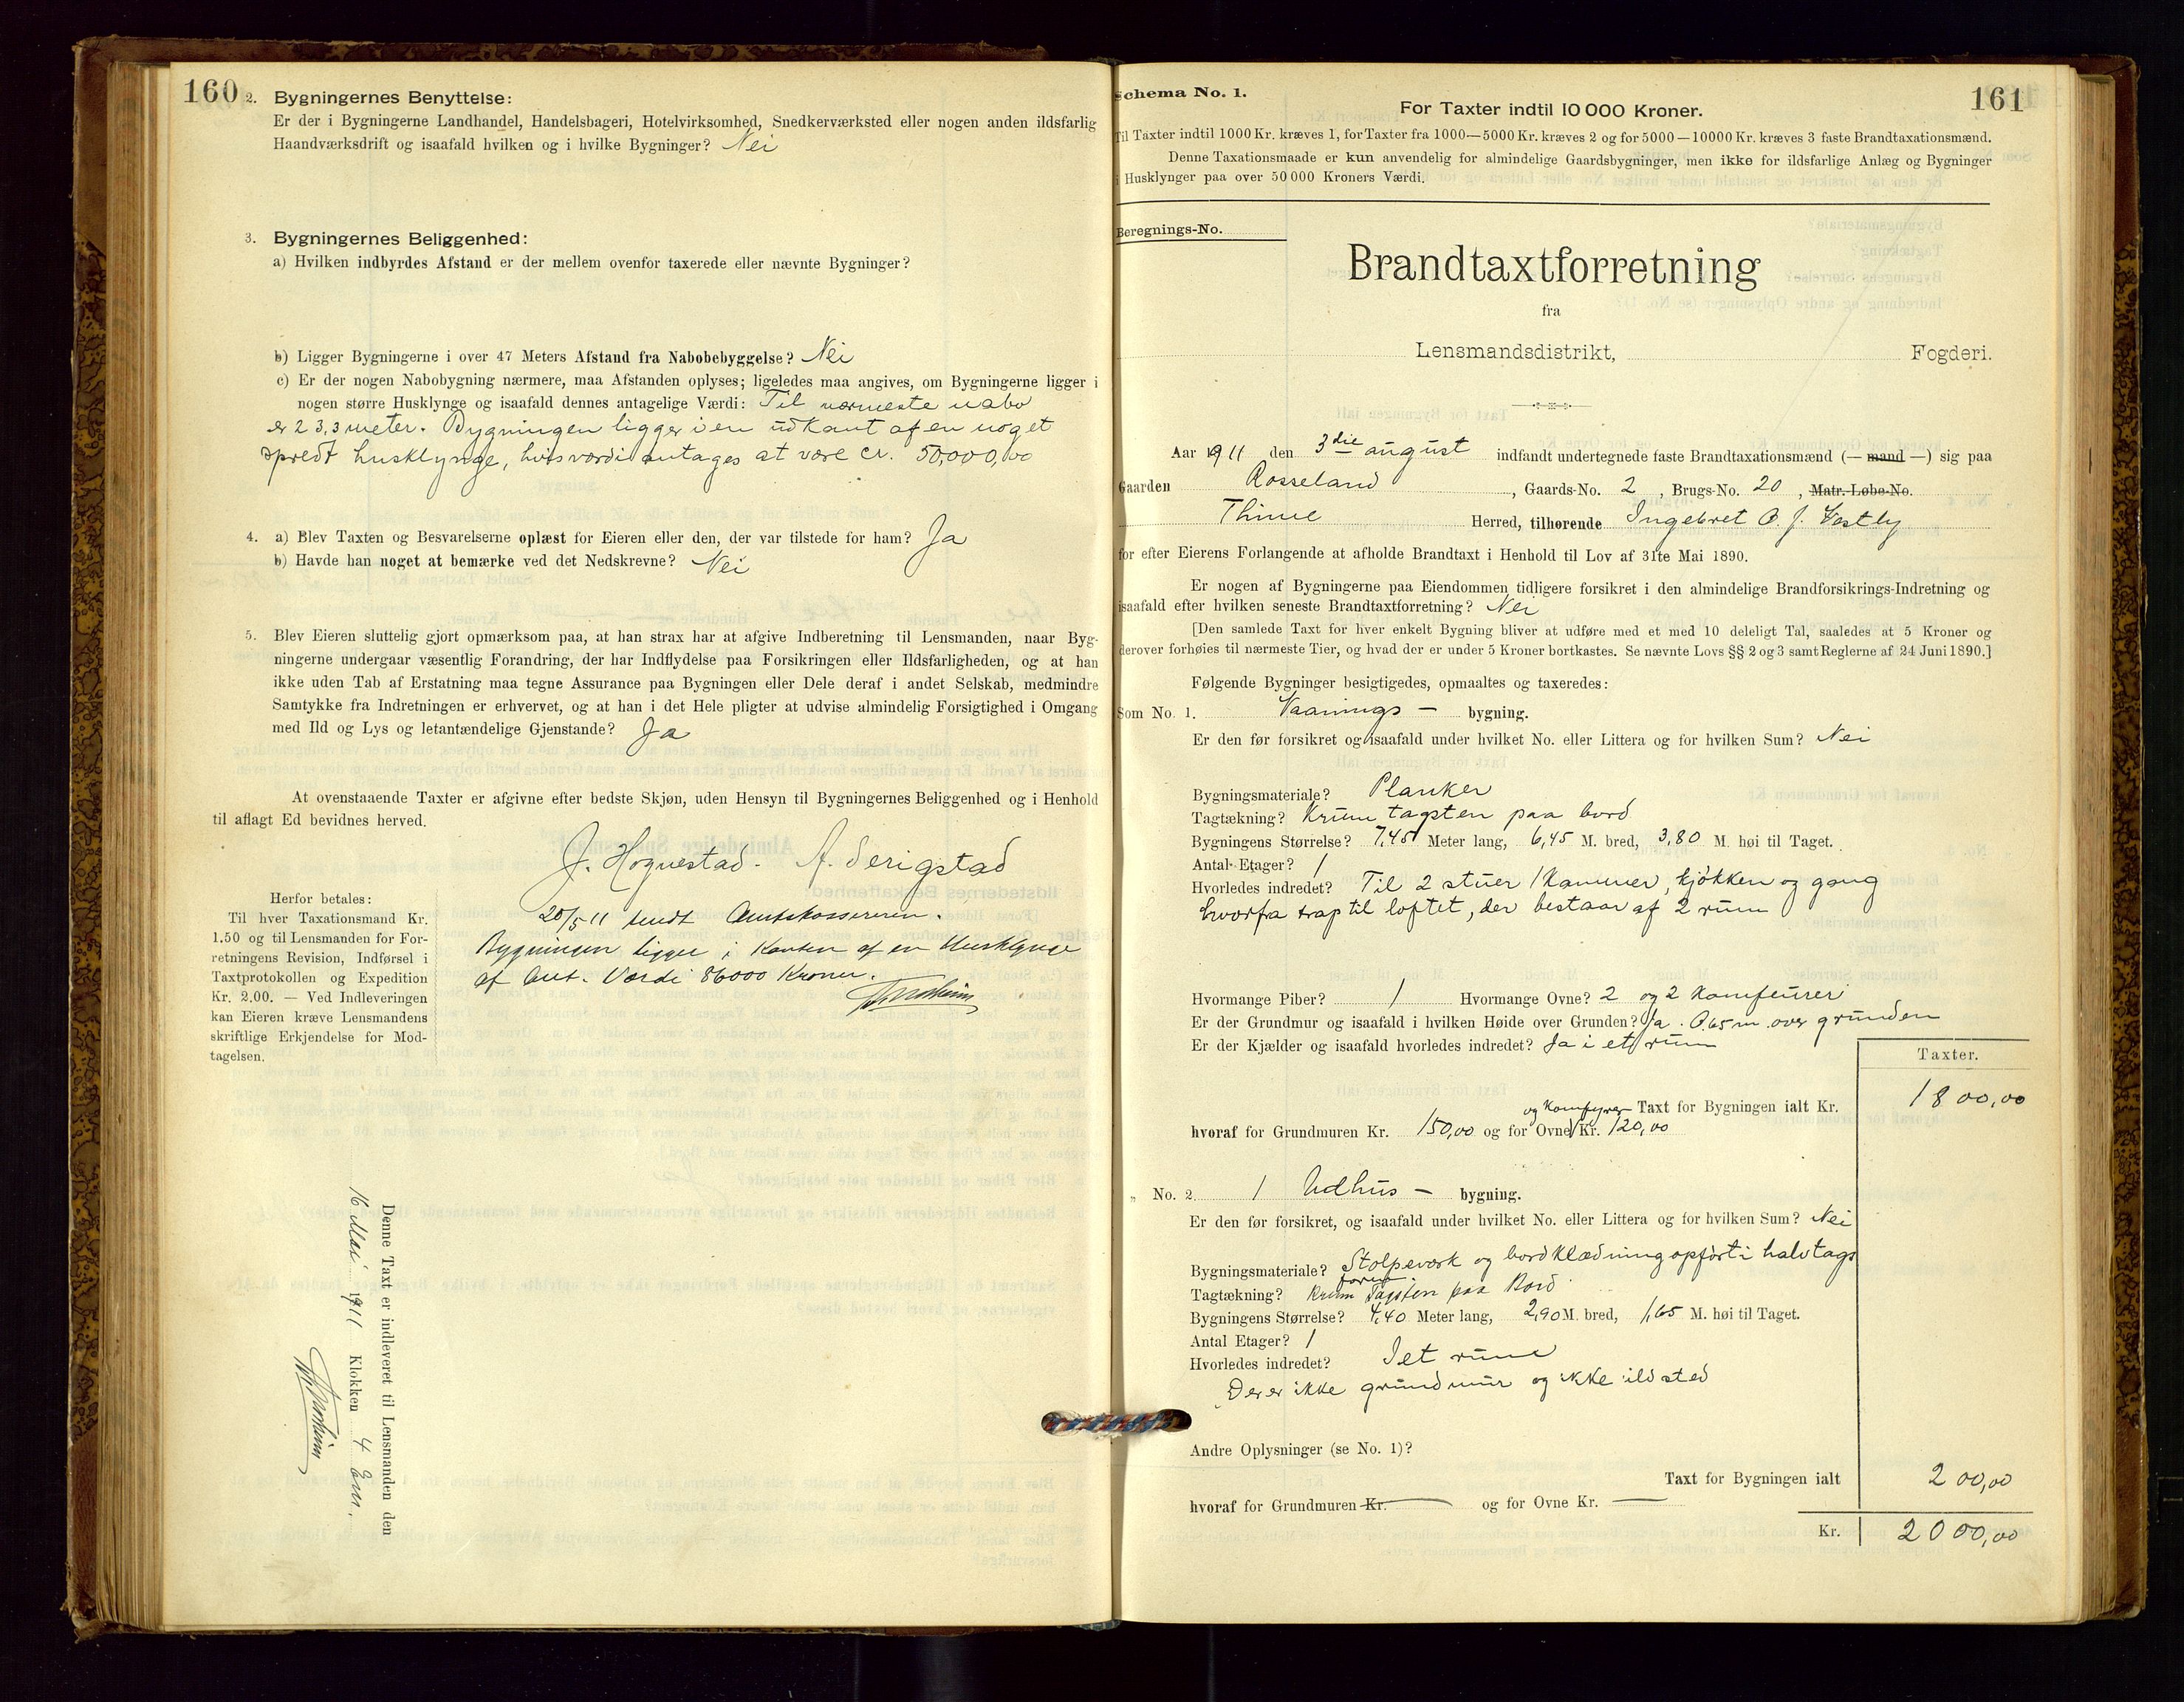 160
2. Bygningernes Benyttelse:
Er der i Bygningerne Landhandel, Handelsbageri, Hotelvirksomhed, Snedkerværksted eller nogen anden ildsfarlig
Haandværksdrift og isaafald hvilken og i hvilke Bygninger? Nei
3. Bygningernes Beliggenhed:
a) Hvilken indbyrdes Afstand er der mellem ovenfor taxerede eller nævnte Bygninger?
b) Ligger Bygningerne i over 47 Meters Afstand fra Nabobebyggelse? Nei
c) Er der nogen Nabobygning nærmere, maa Afstanden oplyses; ligeledes maa angives, om Bygningerne ligger i
nogen større Husklynge og isaafald dennes antagelige Værdi: Til nærmeste nabo
er 23,3 meter. Bygningen ligger i en udkant af en noget
spredt husklynge, hvis værdi antages at være cr. 50,000,00
4. a) Blev Taxten og Besvarelserne oplæst for Eieren eller den, der var tilstede for ham? Ja
b) Havde han noget at bemærke ved det Nedskrevne? Nei
5. Blev Eieren sluttelig gjort opmærksom paa, at han strax har at afgive Indberetning til Lensmanden, naar Byg-
ningerne undergaar væsentlig Forandring, der har Indflydelse paa Forsikringen eller Ildsfarligheden, og at han
ikke uden Tab af Erstatning maa tegne Assurance paa Bygningen eller Dele deraf i andet Selskab, medmindre
Samtykke fra Indretningen er erhvervet, og at han i det Hele pligter at udvise almindelig Forsigtighed i Omgang
med Ild og Lys og letantændelige Gjenstande? Ja
At ovenstaaende Taxter er afgivne efter bedste Skjøn, uden Hensyn til Bygningernes Beliggenhed og i Henhold
til aflagt Ed bevidnes herved.
J. Hognestad. A. Serigstad
Herfor betales:
Til hver Taxationsmand Kr.
1.50 og til Lensmanden for For-
retningens Revision, Indførsel i
Taxtprotokollen og Expedition
Kr. 2.00. — Ved Indleveringen
kan Eieren kræve Lensmandens
skriftlige Erkjendelse for Mod-
tagelsen.
20/5 11 sendt Amtskassereren.
Bygningen ligger i Kanten af en Husklynge
af Ant. Værdi 86000 Kroner.
Denne Taxt er indleveret til Lensmanden den
16 Mai 1911 Klokken 4 Em.
161
Schema No. 1.
For Taxter indtil 10 000 Kroner.
Til Taxter indtil 1000 Kr. kræves 1, for Taxter fra 1000—5000 Kr. kræves 2 og for 5000—10000 Kr. kræves 3 faste Brandtaxationsmænd.
Denne Taxationsmaade er kun anvendelig for almindelige Gaardsbygninger, men ikke for ildsfarlige Anlæg og Bygninger
i Husklynger paa over 50 000 Kroners Værdi.
Beregnings-No.
Brandtaxtforretning
fra
Lensmandsdistrikt, Fogderi.
Aar 1911 den 3die august indfandt undertegnede faste Brandtaxationsmænd (— mand —) sig paa
Gaarden Rosseland, Gaards-No. 2, Brugs-No. 20, Matr.-Løbe-No.
Thime Herred, tilhørende Ingebret O. J. Vestly
for efter Eierens Forlangende at afholde Brandtaxt i Henhold til Lov af 31te Mai 1890.
Er nogen af Bygningerne paa Eiendommen tidligere forsikret i den almindelige Brandforsikrings-Indretning og
isaafald efter hvilken seneste Brandtaxtforretning? Nei
[Den samlede Taxt for hver enkelt Bygning bliver at udføre med et med 10 deleligt Tal, saaledes at 5 Kroner og
derover forhøies til nærmeste Tier, og hvad der er under 5 Kroner bortkastes. Se nævnte Lovs §§ 2 og 3 samt Reglerne af 24 Juni 1890.]
Følgende Bygninger besigtigedes, opmaaltes og taxeredes:
Som No. 1. Vaanings — bygning.
Er den før forsikret og isaafald under hvilket No. eller Littera og for hvilken Sum? Nei
Bygningsmateriale? Planker
Tagtækning? Krum tagsten paa bord
Bygningens Størrelse? 7,45 Meter lang, 6,45 M. bred, 3,80 M. høi til Taget.
Antal Etager? 1
Hvorledes indredet? Til 2 stuer 1 kammer, kjøkken og gang
hvorfra trap til loftet, der bestaar af 2 rum
Hvormange Piber? 1 Hvormange Ovne? 2 og 2 Komfeurer
Er der Grundmur og isaafald i hvilken Høide over Grunden? Ja. 0,65 m over grunden
Er der Kjælder og isaafald hvorledes indredet? Ja i et rum
Taxter.
og Komfyrer Taxt for Bygningen ialt Kr. 1800,00
hvoraf for Grundmuren Kr. 150,00 og for Ovne Kr. 120,00
„ No. 2. 1 Udhus — bygning.
Er den før forsikret, og isaafald under hvilket No. eller Littera og for hvilken Sum? Nei
Bygningsmateriale? Stolpeværk og bordklædning opført i halvtags
form.
Tagtækning? Krum Tagsten paa Bord
Bygningens Størrelse? 4,40 Meter lang, 2,90 M. bred, 1,65 M. høi til Taget.
Antal Etager? 1
Hvorledes indredet? I et rum
Der er ikke grundmur og ikke ildsted
Andre Oplysninger (se No. 1)?
Taxt for Bygningen ialt 200,00
hvoraf for Grundmuren Kr. — og for Ovne Kr. —
Kr. 2000,00